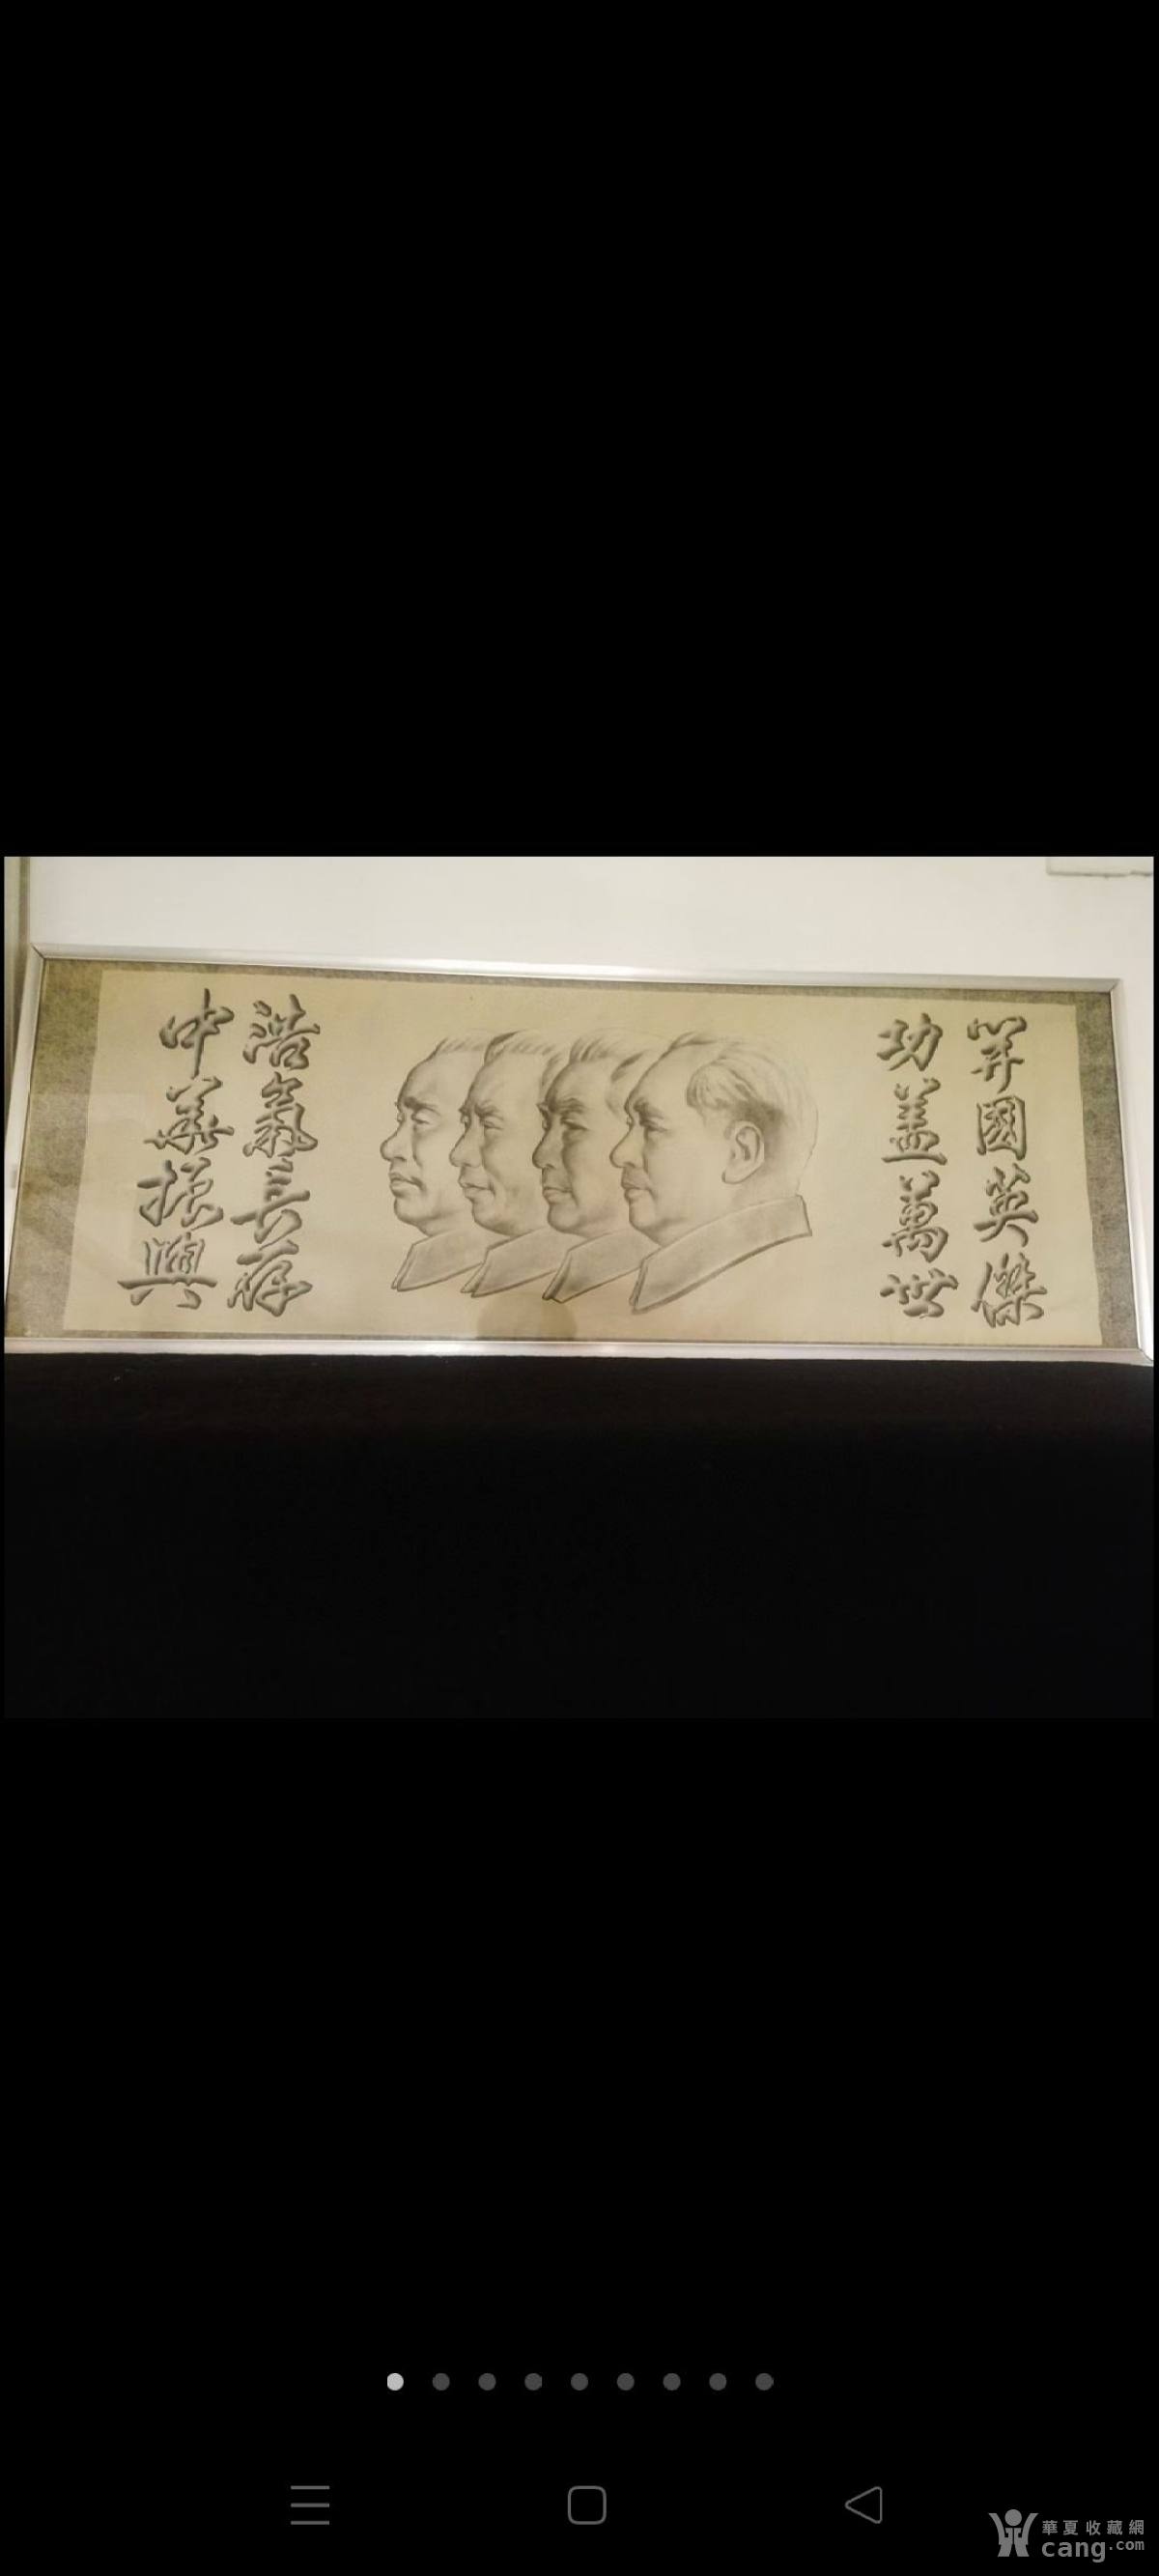 開國英傑
功盖萬世
浩氣長存
中華振興
華夏收藏網
cang.com